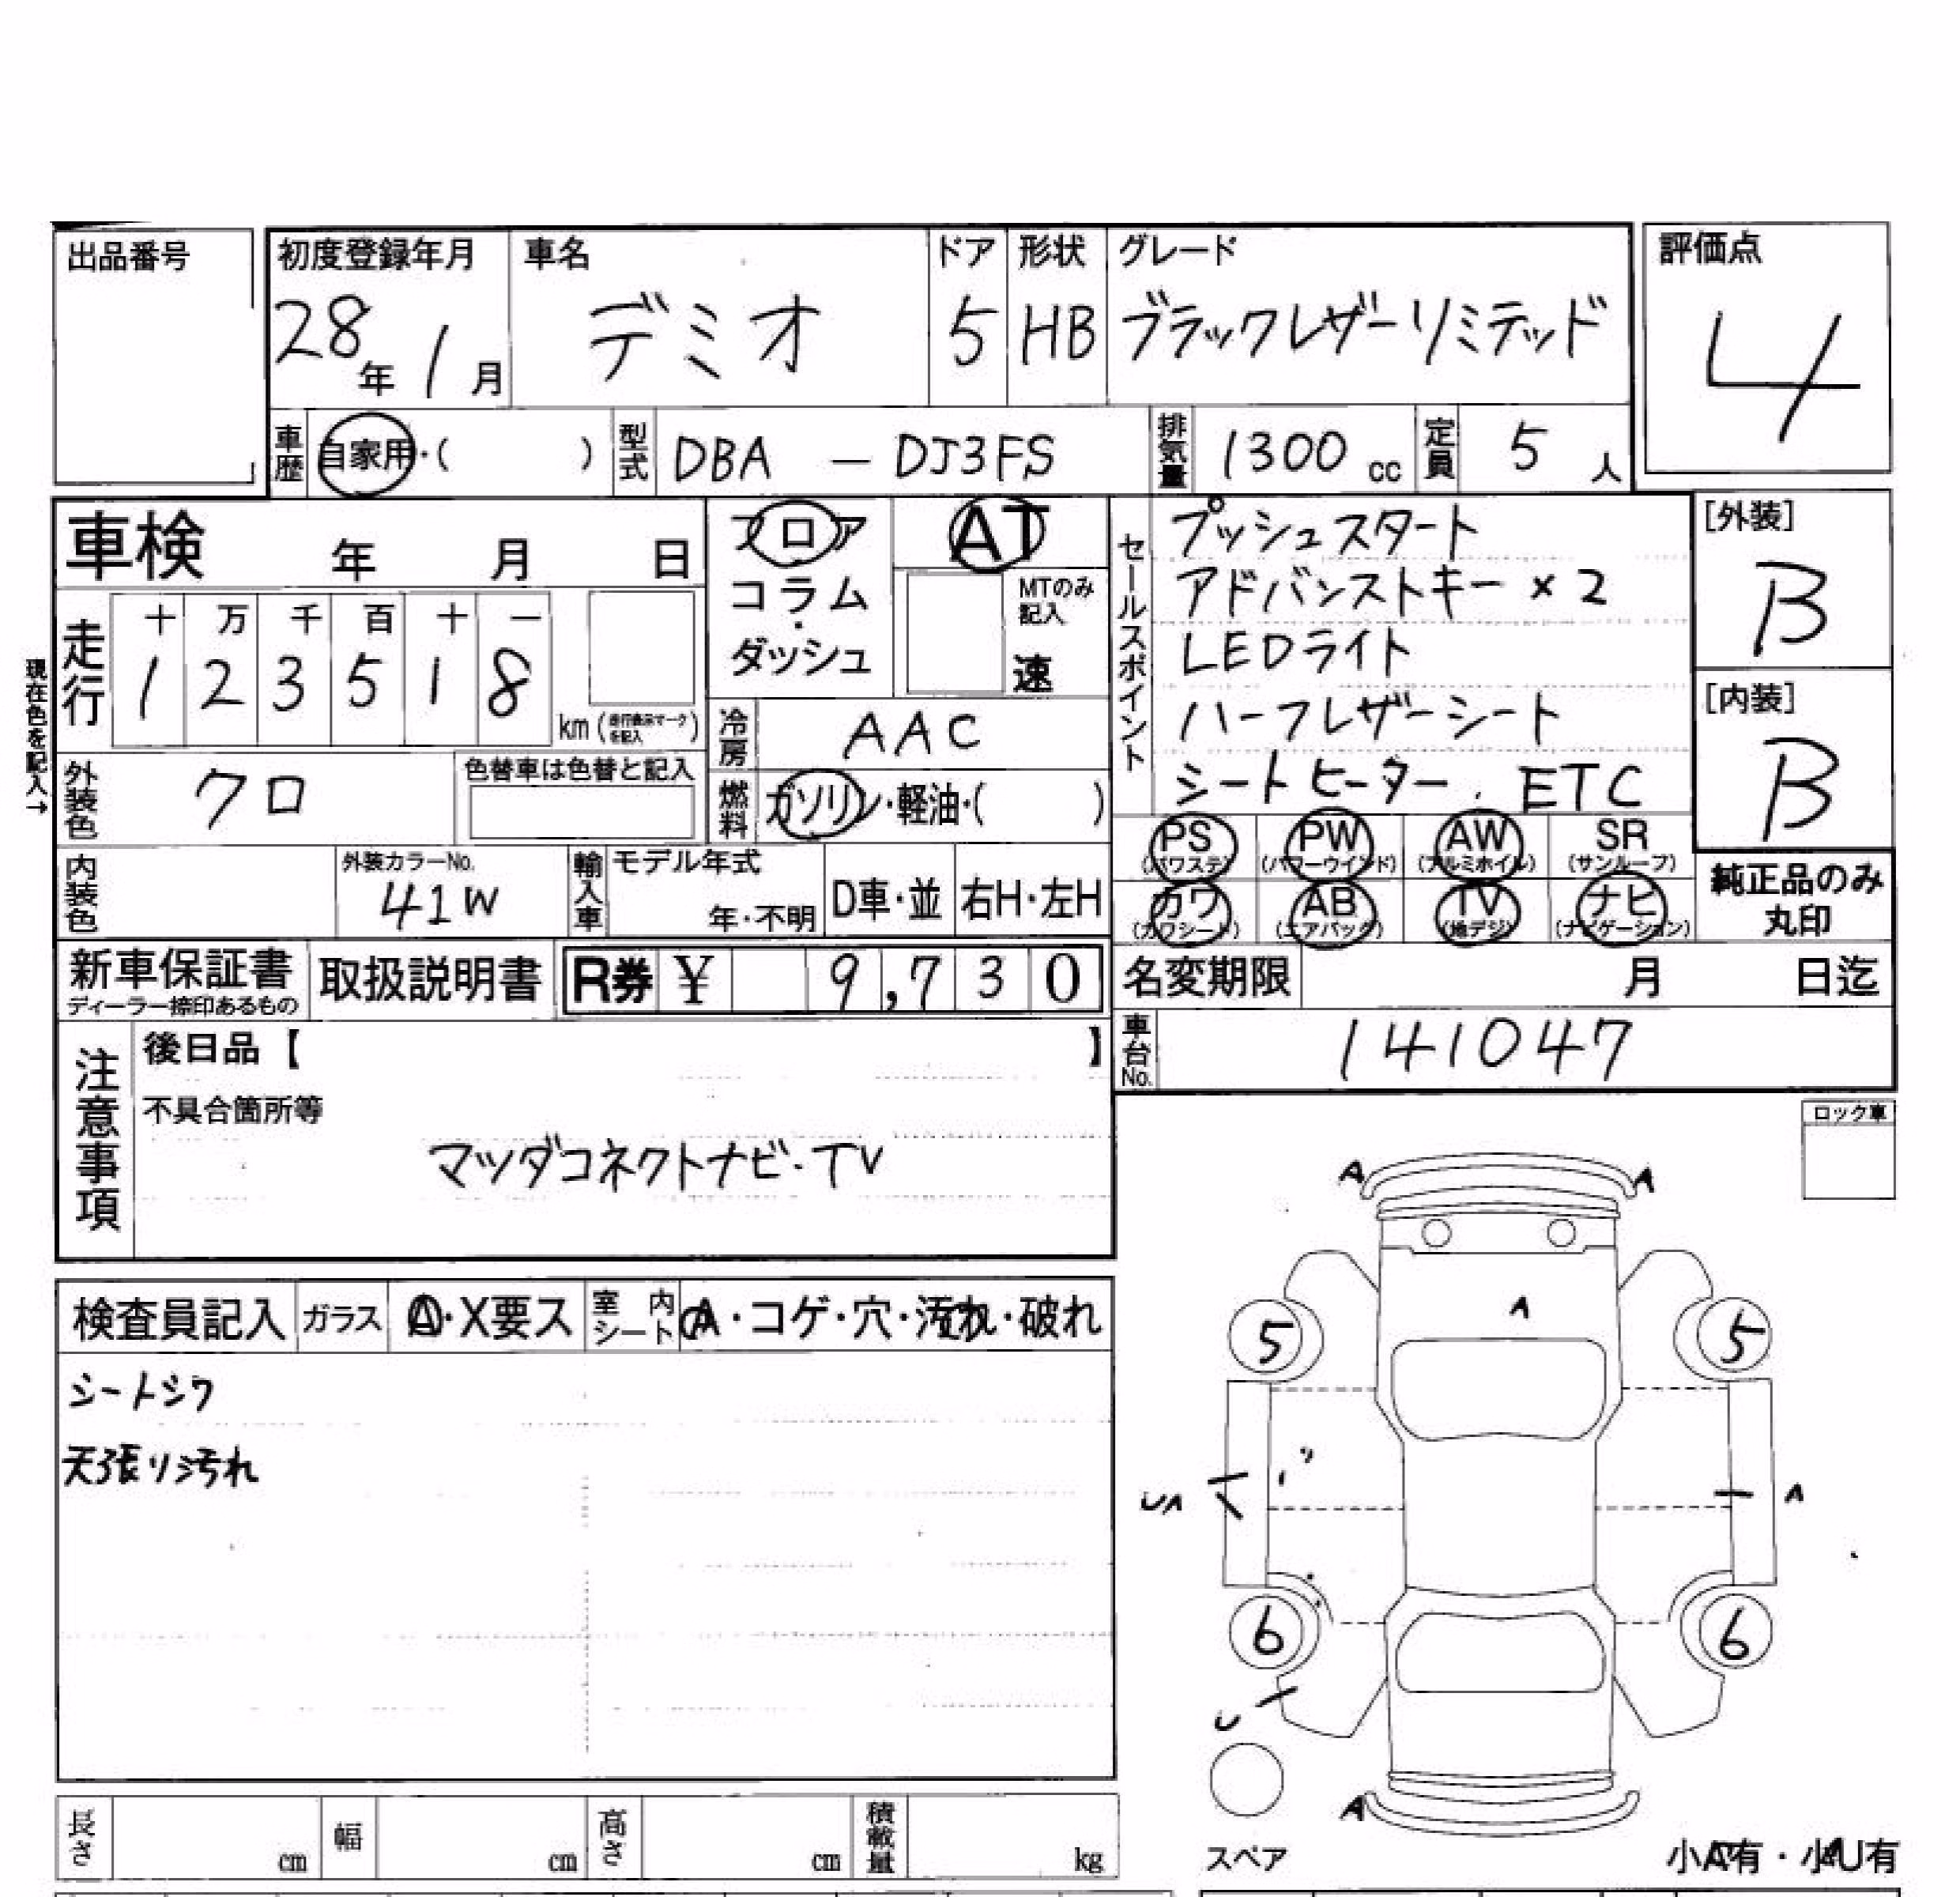 出品番号
初度登録年月 車名 ドア 形状 グレード 評価点
28年 1月 デミオ 5 HB ブラックレザーリミテッド 4
車歴 自家用・( ) 型式 DBA — DJ3FS 排気量 1300 cc 定員 5 人
車検 年 月 日
フロア
コラム
・
ダッシュ
AT
MTのみ
記入
速
現在色を記入→
走行 十 万 千 百 十 一
1 2 3 5 1 8
km(走行表示マークを記入)
冷房 AAC
外装色 クロ 色替車は色替と記入
燃料 ガソリン・軽油・( )
セールスポイント
プッシュスタート
アドバンストキー×2
LEDライト
ハーフレザーシート
シートヒーター. ETC
[外装]
B
[内装]
B
PS (パワステ) PW (パワーウインド) AW (アルミホイル) SR (サンルーフ)
カワ (カワシート) AB (エアバック) TV (地デジ) ナビ (ナビゲーション)
純正品のみ
丸印
内装色 外装カラーNo. 41W 輸入車 モデル年式 年・不明 D車・並 右H・左H
新車保証書 ディーラー捺印あるもの 取扱説明書 R券 ¥ 9,730 名変期限 月 日迄
車台No. 141047
注意事項
後日品【 】
不具合箇所等
マツダコネクトナビ・TV
ロック車
検査員記入 ガラス A・X要ス 室内シート A・コゲ・穴・汚れ・破れ
シートシワ
天張リ汚れ
A A
A
5 5
UA A
6 6
U
A
スペア
小A有・小U有
長さ cm 幅 cm 高さ cm 積載量 kg